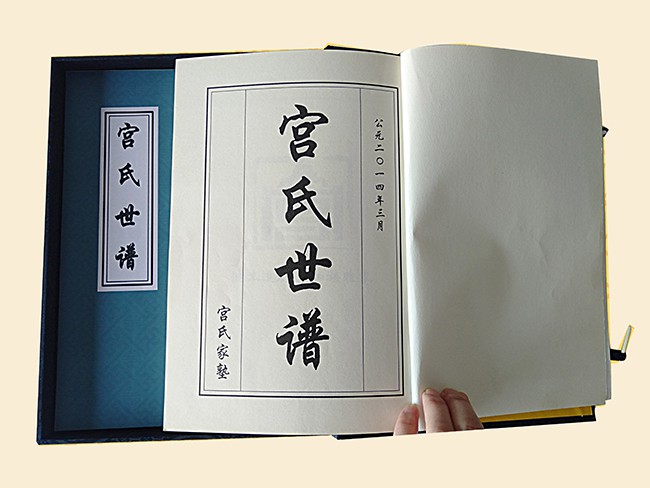 宫氏世谱
公元二〇一四年三月
宫氏世谱
宫氏家塾